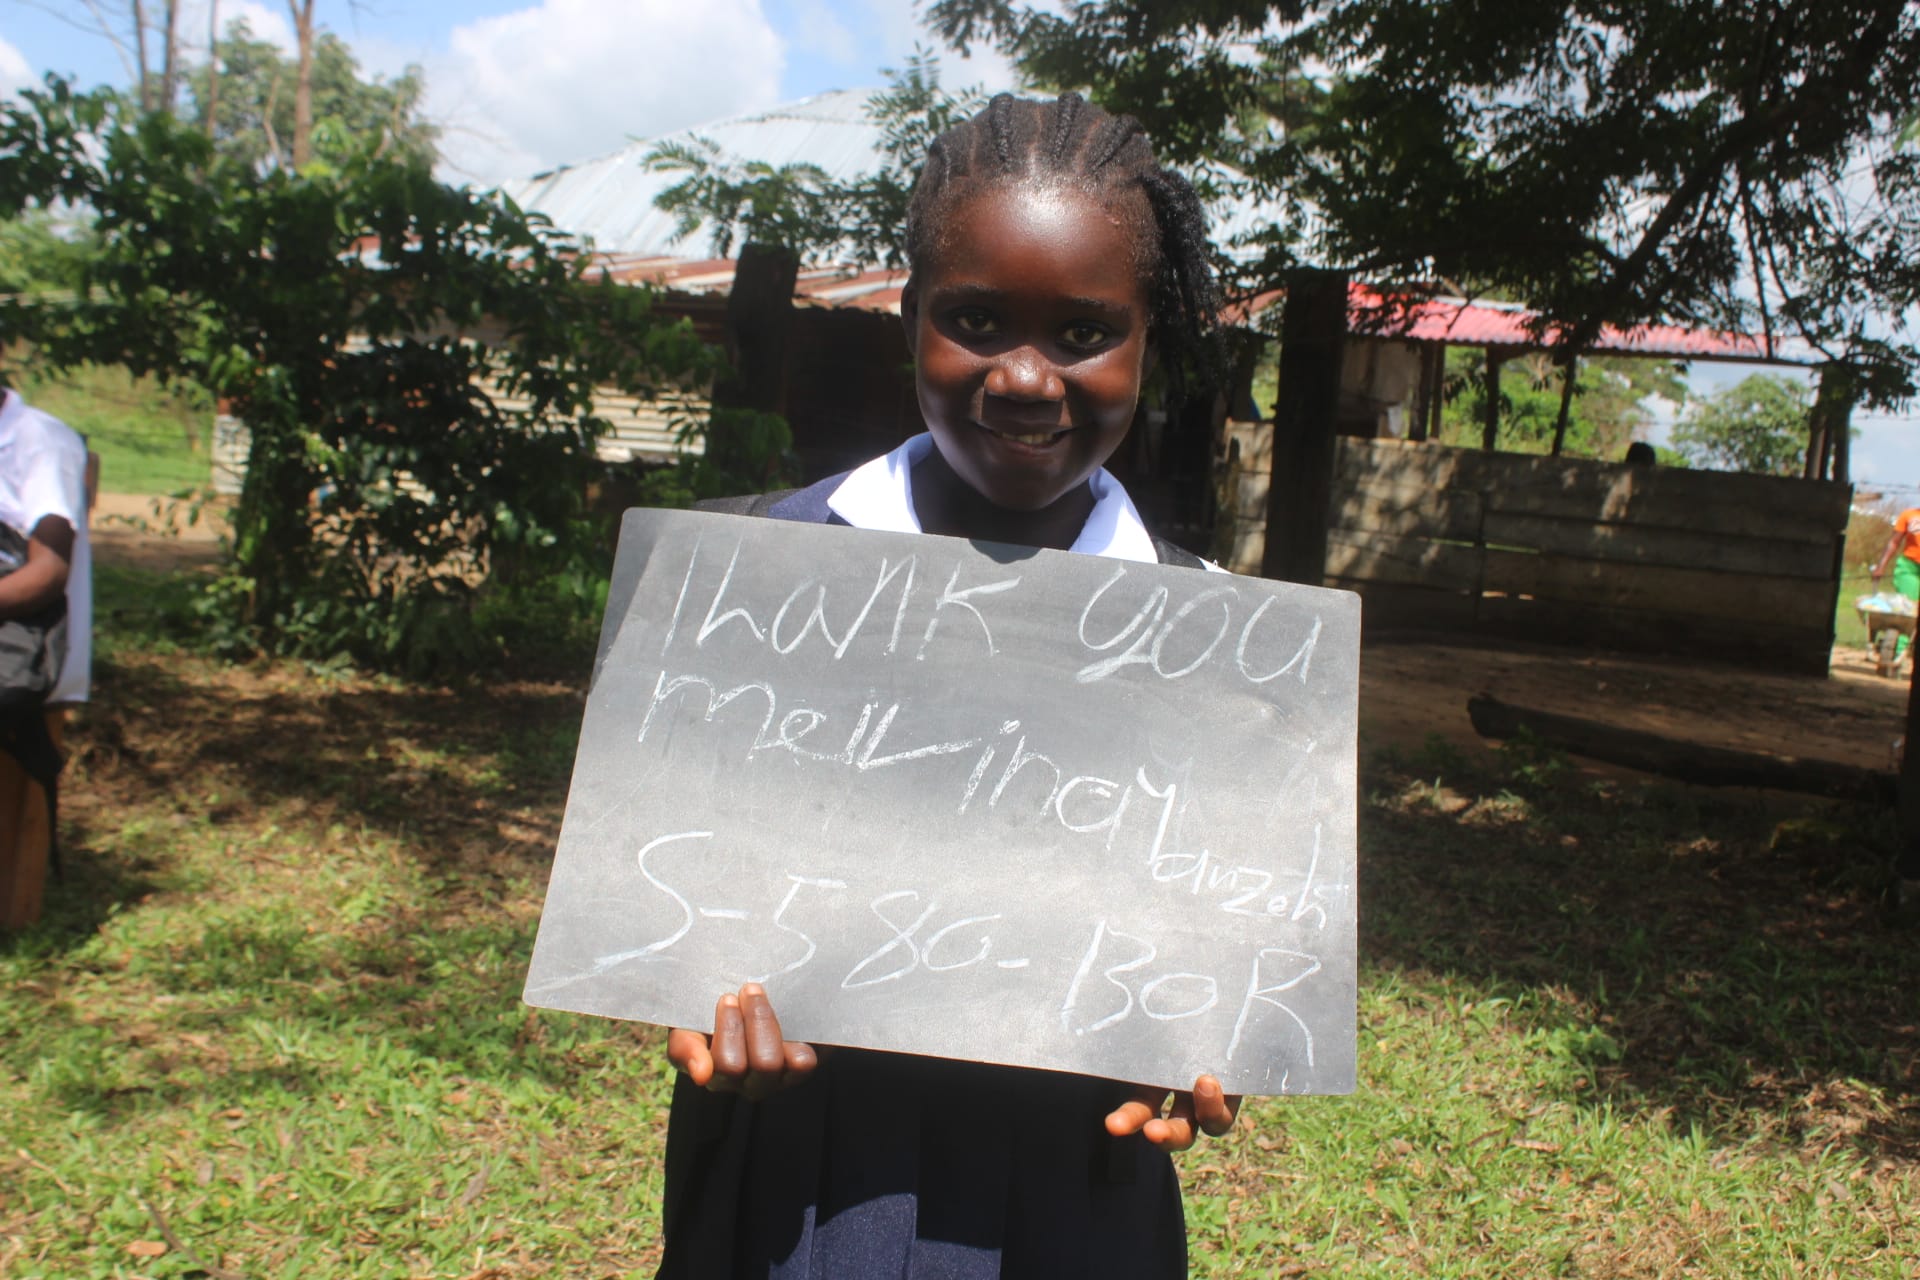 Thank you
Mellinay
S-580-BOR